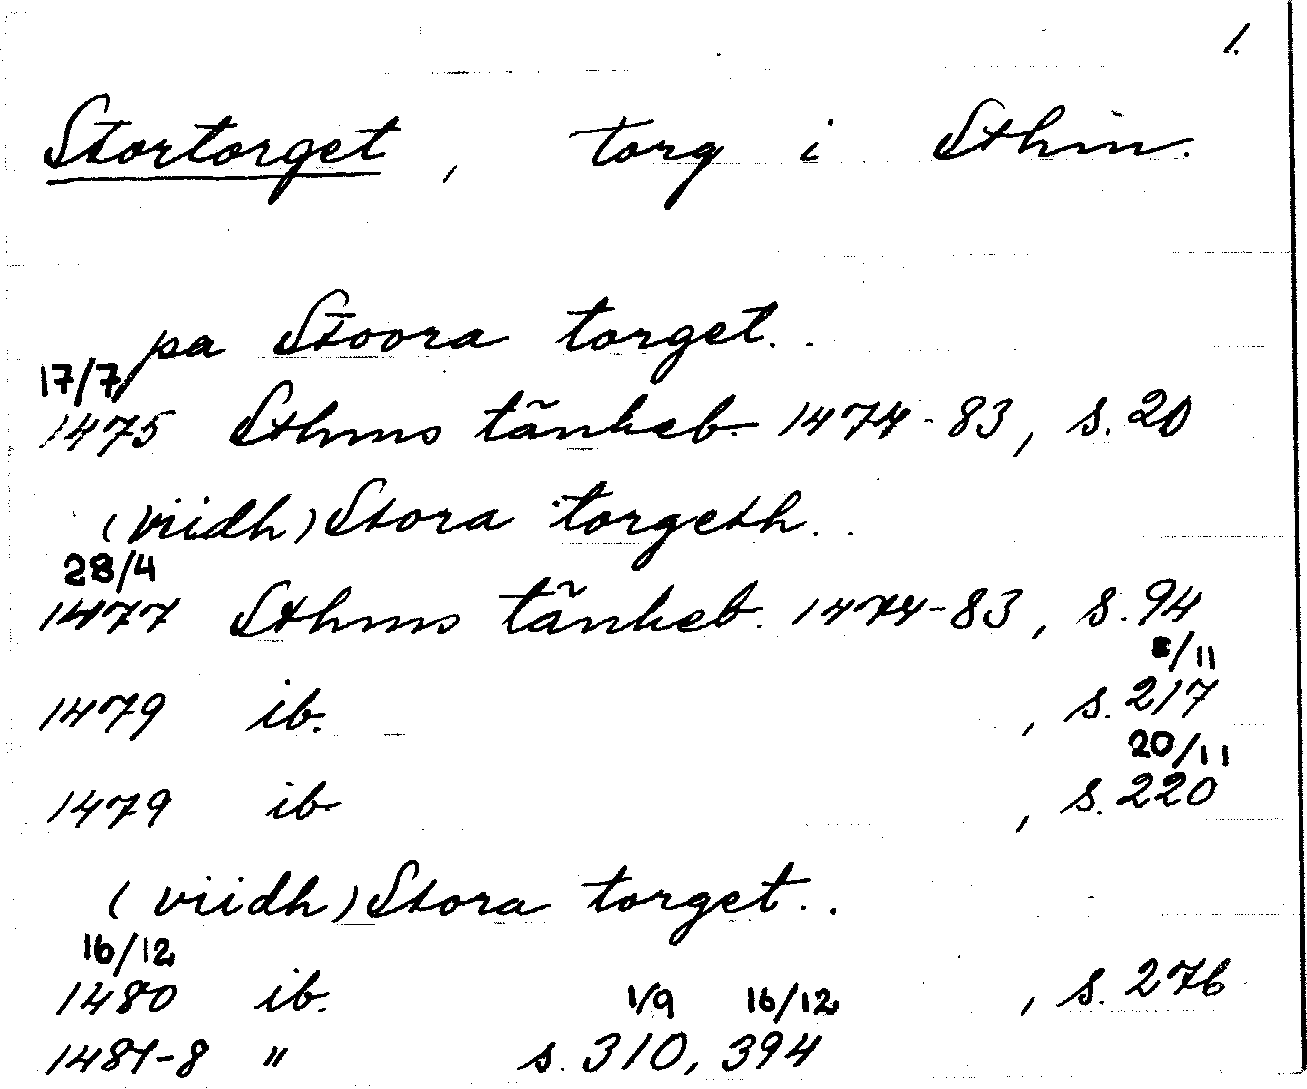 1.
Stortorget, torg i Sthlm.
pa Stoora torget..
17/7
1475 Sthms tänkeb. 1474-83, s. 20
(viidh) Stora torgeth..
28/4
1477 Sthms tänkeb. 1474-83, s. 94
8/11
1479 ib. , s. 217
20/11
1479 ib , s. 220
(viidh) Stora torget..
16/12
1480 ib. , s. 276
1/9 16/12
1481-8 " s. 310, 394